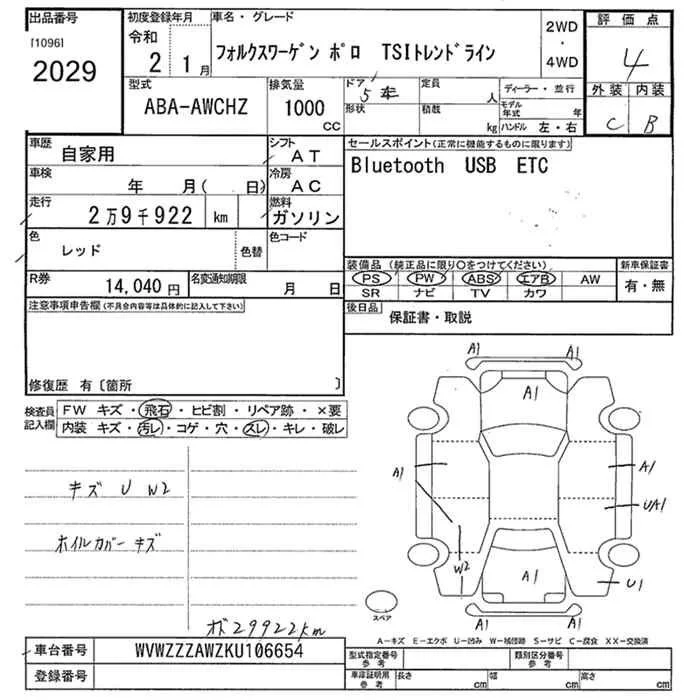 出品番号 初度登録年月 車名・グレード 評価点
[1096] 令和 フォルクスワーゲン ポロ TSIトレンドライン 2WD
・
2029 2 1月 4WD 4
型式 排気量 ドア 5 定員 人 ディーラー・並行 外装 内装
ABA-AWCHZ 1000 CC 形状 積載 kg モデル年式 年 C B
ハンドル 左・右
車歴 自家用 シフト AT セールスポイント(正常に機能するものに限ります)
車検 年 月( 日) 冷房 AC Bluetooth USB ETC
走行 2万9千922 km 燃料 ガソリン
色 レッド 色替 色コード
R券 14,040円 名変通知期限 月 日 装備品 (純正品に限り○をつけてください) 新車保証書
PS PW ABS エアB AW 有・無
SR ナビ TV カワ
注意事項申告欄(不具合内容等は具体的に記入して下さい) 後日品 保証書・取説
修復歴 有〔箇所 〕
検査員記入欄 FW キズ・飛石・ヒビ割・リペア跡・×要
内装 キズ・汚レ・コゲ・穴・スレ・キレ・破レ
A1 A1
A1
A1 A1
UA1
キズ U W2
ホイルカバーキズ
W2 A1 U1
A1
スペア
オド29922km
A-キズ E-エクボ U-凹み W-補修跡 S-サビ C-腐食 XX-交換済
車台番号 WVWZZZAWZKU106654 型式指定番号 参考 類別区分番号 参考
登録番号 車庫証明用 参考 長さ cm 幅 cm 高さ cm